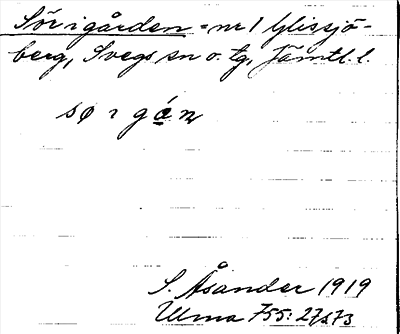 Sör i gården = nr 1 Glissjö-
berg, Svegs sn o. tg, Jämtl. l.
sø ı gǻn
S. Åsander 1919
Ulma 755: 27573